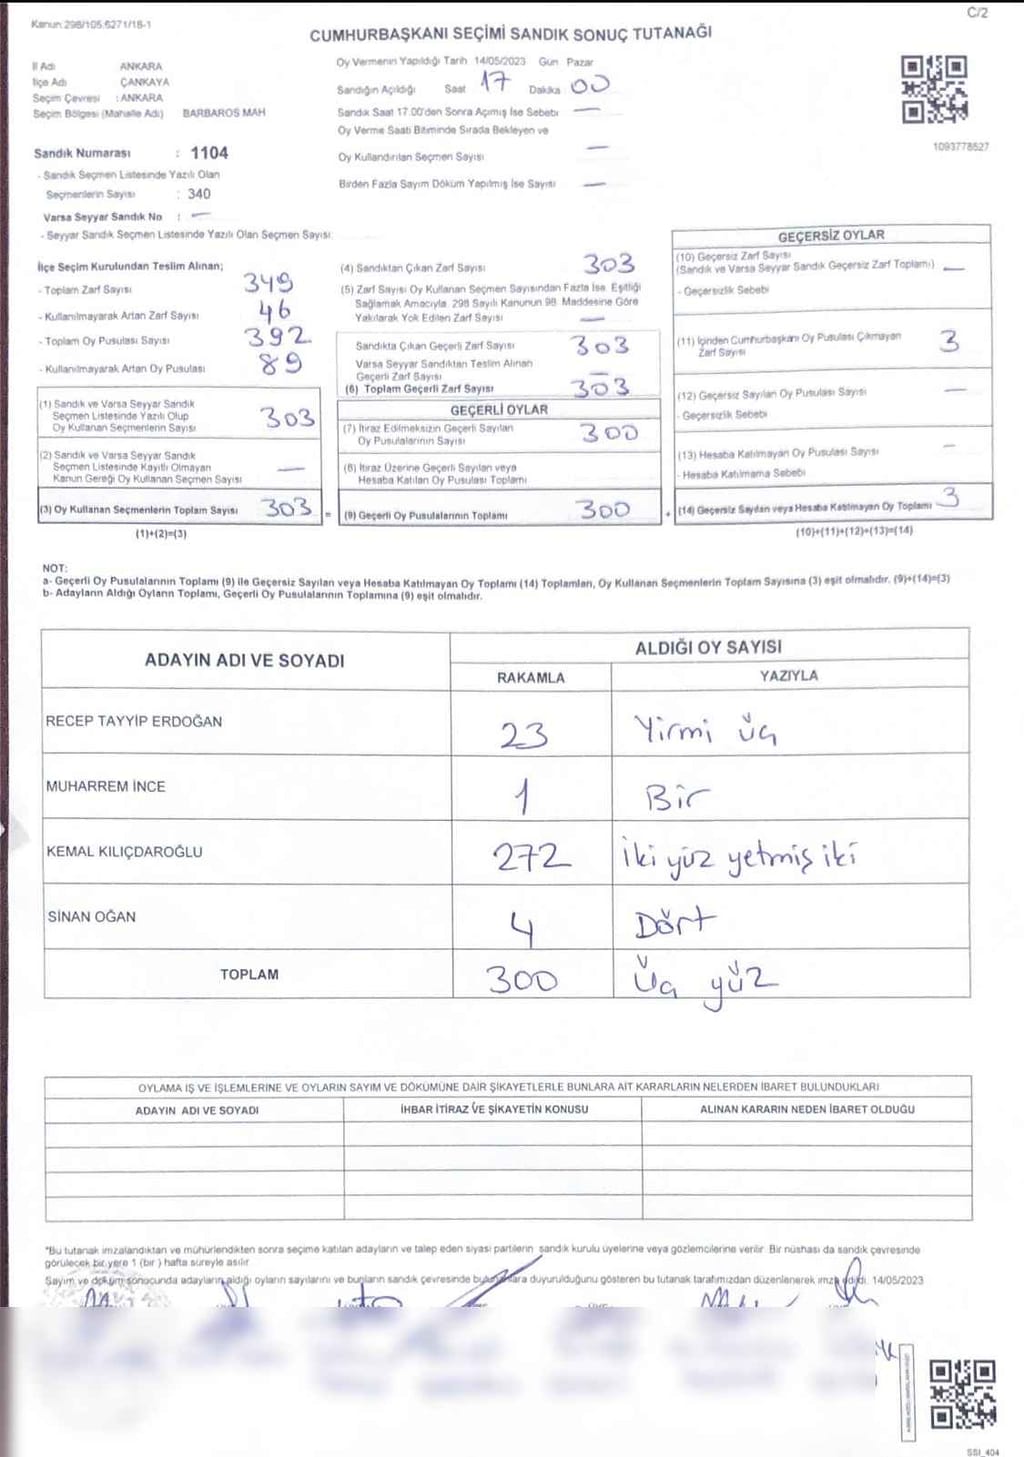 Kanun:298/105,6271/18-1
C/2
CUMHURBAŞKANI SEÇİMİ SANDIK SONUÇ TUTANAĞI
İl Adı ANKARA
İlçe Adı ÇANKAYA
Seçim Çevresi : ANKARA
Seçim Bölgesi (Mahalle Adı) BARBAROS MAH
Sandık Numarası : 1104
- Sandık Seçmen Listesinde Yazılı Olan
Seçmenlerin Sayısı : 340
Varsa Seyyar Sandık No : —
- Seyyar Sandık Seçmen Listesinde Yazılı Olan Seçmen Sayısı:
Oy Vermenin Yapıldığı Tarih 14/05/2023 Gün Pazar
Sandığın Açıldığı Saat 17 Dakika 00
Sandık Saat 17.00'den Sonra Açılmış İse Sebebi —
Oy Verme Saati Bitiminde Sırada Bekleyen ve
Oy Kullandırılan Seçmen Sayısı —
Birden Fazla Sayım Döküm Yapılmış İse Sayısı —
1093778527
İlçe Seçim Kurulundan Teslim Alınan;
- Toplam Zarf Sayısı 349
- Kullanılmayarak Artan Zarf Sayısı 46
- Toplam Oy Pusulası Sayısı 392
- Kullanılmayarak Artan Oy Pusulası 89
(1) Sandık ve Varsa Seyyar Sandık
Seçmen Listesinde Yazılı Olup
Oy Kullanan Seçmenlerin Sayısı 303
(2) Sandık ve Varsa Seyyar Sandık
Seçmen Listesinde Kayıtlı Olmayan
Kanun Gereği Oy Kullanan Seçmen Sayısı —
(3) Oy Kullanan Seçmenlerin Toplam Sayısı 303 =
(1)+(2)=(3)
(4) Sandıktan Çıkan Zarf Sayısı 303
(5) Zarf Sayısı Oy Kullanan Seçmen Sayısından Fazla İse, Eşitliği
Sağlamak Amacıyla, 298 Sayılı Kanunun 98. Maddesine Göre
Yakılarak Yok Edilen Zarf Sayısı —
Sandıkta Çıkan Geçerli Zarf Sayısı 303
Varsa Seyyar Sandıktan Teslim Alınan
Geçerli Zarf Sayısı —
(6) Toplam Geçerli Zarf Sayısı 303
GEÇERLİ OYLAR
(7) İtiraz Edilmeksizin Geçerli Sayılan
Oy Pusulalarının Sayısı 300
(8) İtiraz Üzerine Geçerli Sayılan veya
Hesaba Katılan Oy Pusulası Toplamı
(9) Geçerli Oy Pusulalarının Toplamı 300 +
GEÇERSİZ OYLAR
(10) Geçersiz Zarf Sayısı
(Sandık ve Varsa Seyyar Sandık Geçersiz Zarf Toplamı) —
- Geçersizlik Sebebi
(11) İçinden Cumhurbaşkanı Oy Pusulası Çıkmayan
Zarf Sayısı 3
(12) Geçersiz Sayılan Oy Pusulası Sayısı —
- Geçersizlik Sebebi
(13) Hesaba Katılmayan Oy Pusulası Sayısı —
- Hesaba Katılmama Sebebi
(14) Geçersiz Sayılan veya Hesaba Katılmayan Oy Toplamı 3
(10)+(11)+(12)+(13)=(14)
NOT:
a- Geçerli Oy Pusulalarının Toplamı (9) ile Geçersiz Sayılan veya Hesaba Katılmayan Oy Toplamı (14) Toplamları, Oy Kullanan Seçmenlerin Toplam Sayısına (3) eşit olmalıdır. (9)+(14)=(3)
b- Adayların Aldığı Oyların Toplamı, Geçerli Oy Pusulalarının Toplamına (9) eşit olmalıdır.
ADAYIN ADI VE SOYADI ALDIĞI OY SAYISI
RAKAMLA YAZIYLA
RECEP TAYYİP ERDOĞAN 23 Yirmi üç
MUHARREM İNCE 1 Bir
KEMAL KILIÇDAROĞLU 272 İki yüz yetmiş iki
SİNAN OĞAN 4 Dört
TOPLAM 300 Üç yüz
OYLAMA İŞ VE İŞLEMLERİNE VE OYLARIN SAYIM VE DÖKÜMÜNE DAİR ŞİKAYETLERLE BUNLARA AİT KARARLARIN NELERDEN İBARET BULUNDUKLARI
ADAYIN ADI VE SOYADI İHBAR İTİRAZ VE ŞİKAYETİN KONUSU ALINAN KARARIN NEDEN İBARET OLDUĞU
*Bu tutanak imzalandıktan ve mühürlendikten sonra seçime katılan adayların ve talep eden siyasi partilerin sandık kurulu üyelerine veya gözlemcilerine verilir. Bir nüshası da sandık çevresinde
görülecek bir yere 1 (bir) hafta süreyle asılır
Sayım ve döküm sonucunda adayların aldığı oyların sayılarını ve bunların sandık çevresinde bulunanlara duyurulduğunu gösteren bu tutanak tarafımızdan düzenlenerek imza edildi. 14/05/2023
SSI_404